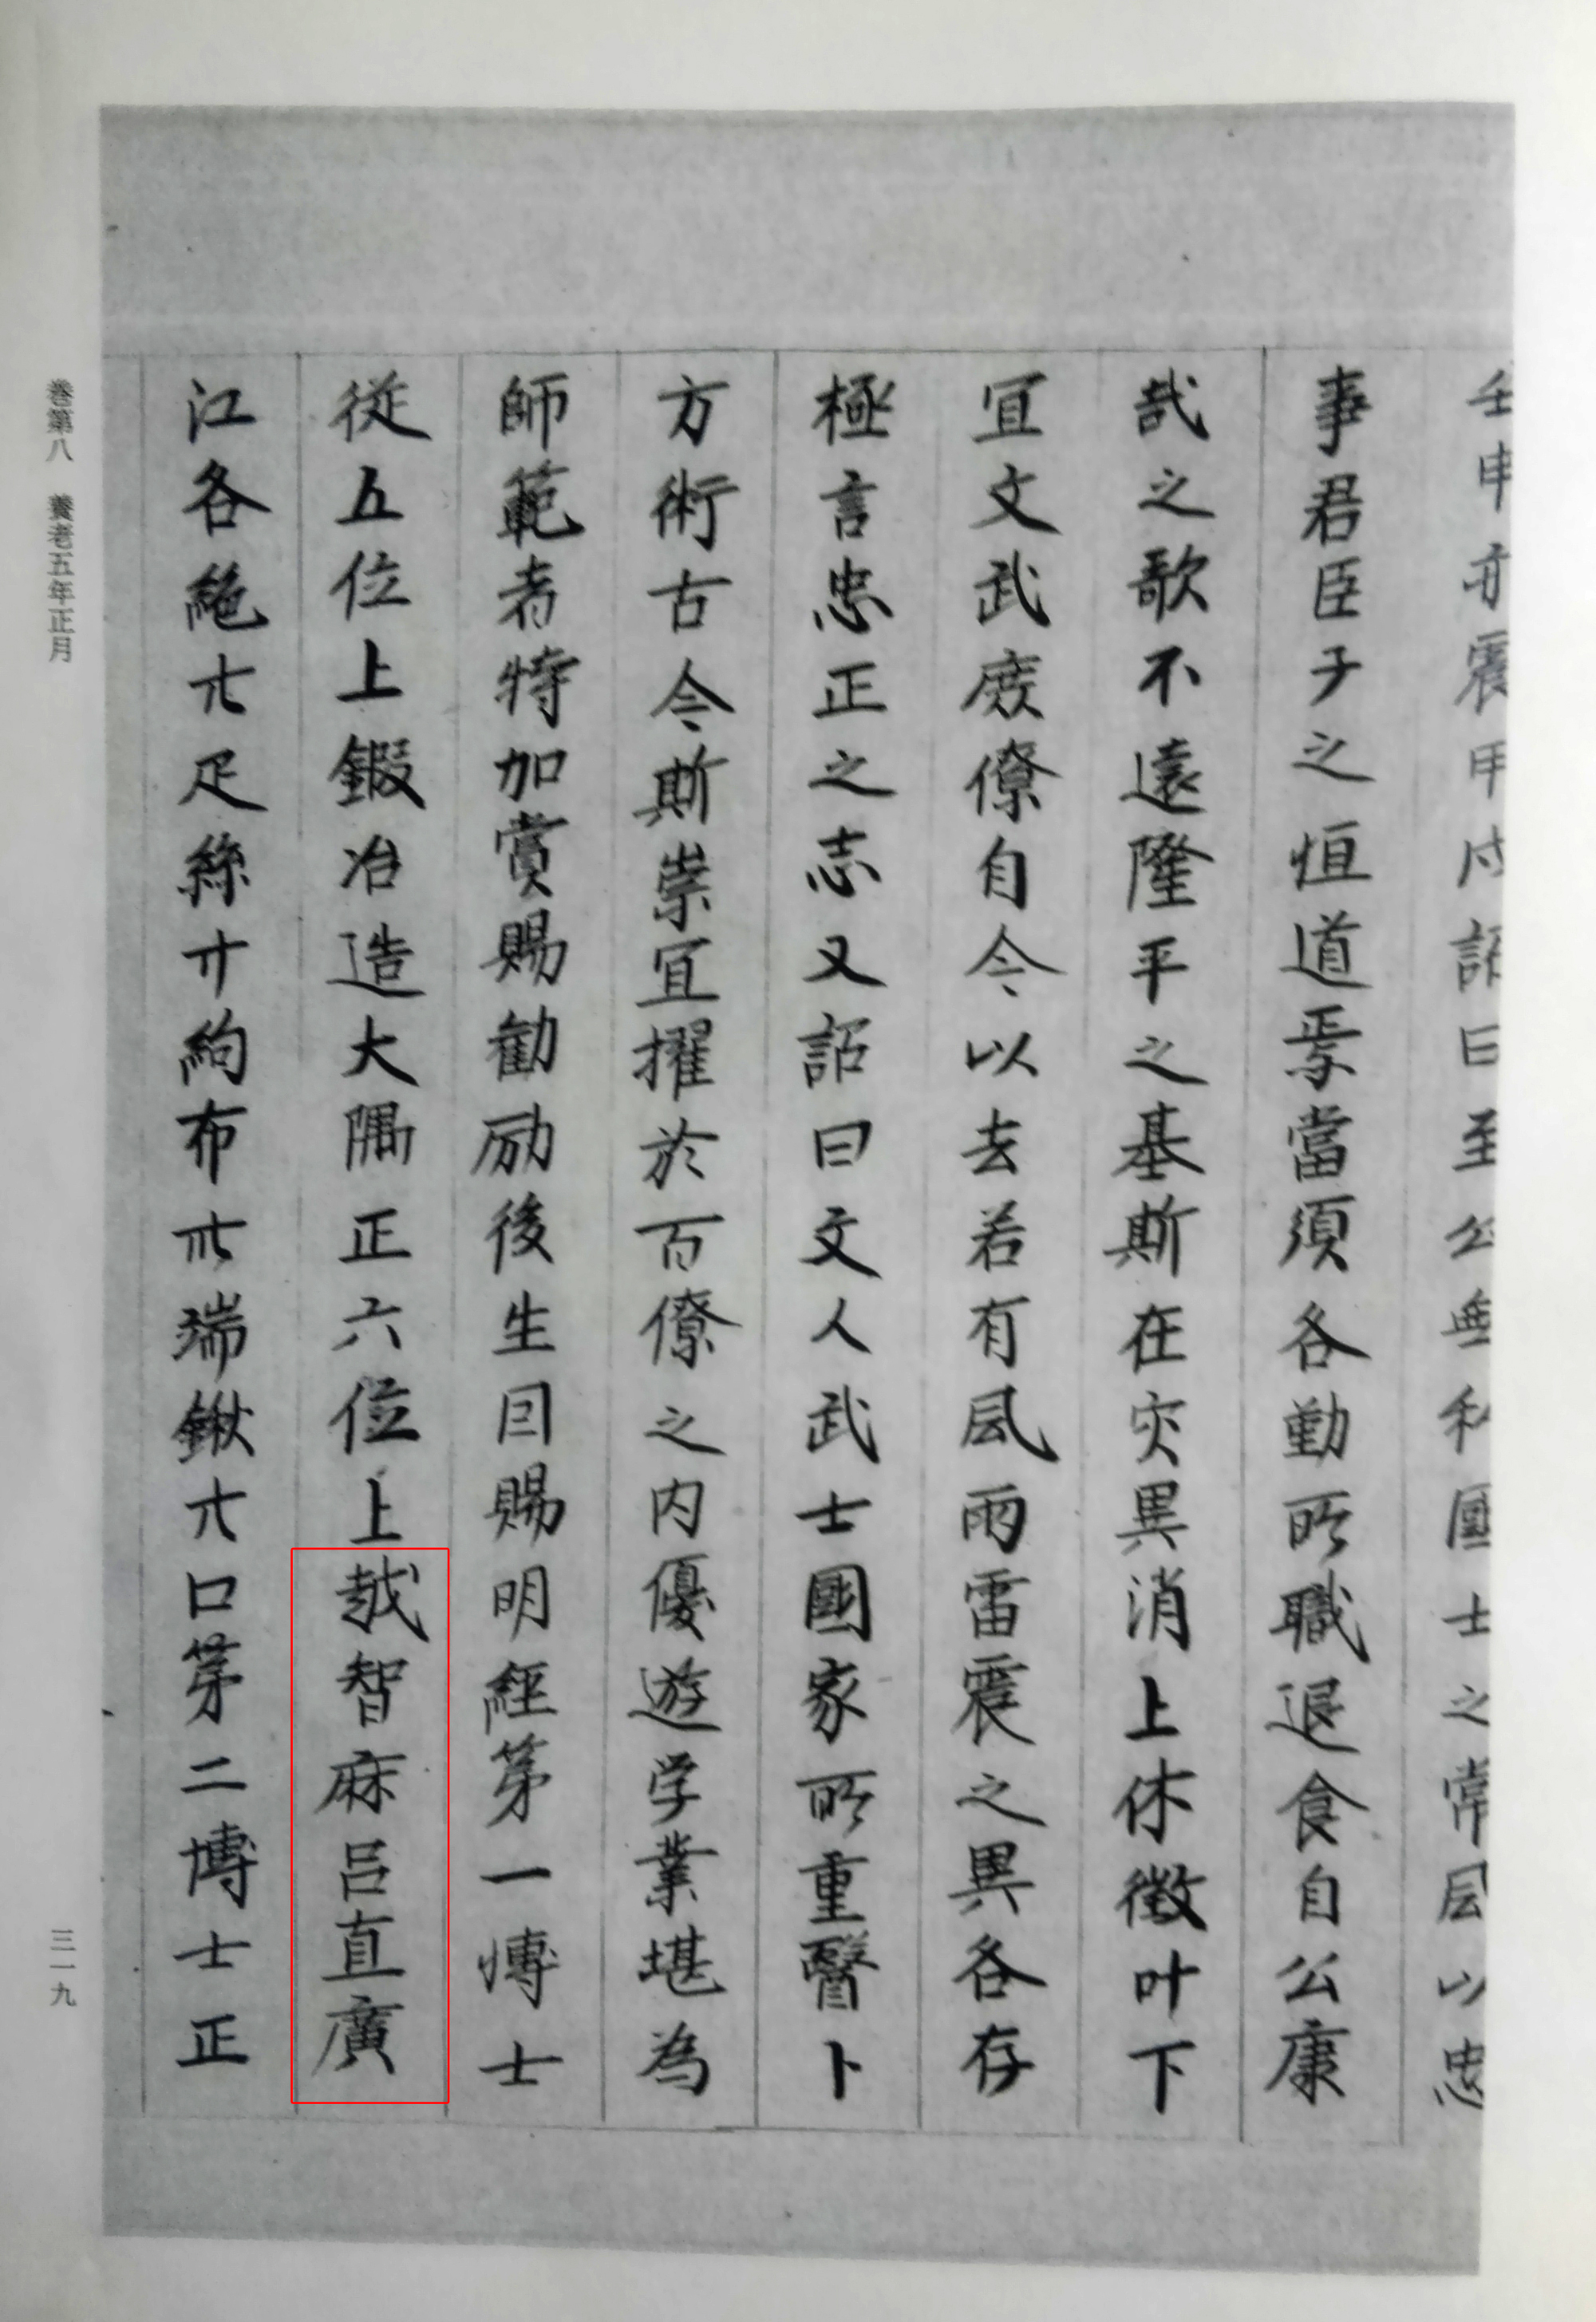 壬申亦震甲戌詔曰至公無私國士之常風以忠
事君臣子之恒道焉當須各勤所職退食自公康
哉之歌不遠隆平之基斯在灾異消上休徵叶下
宜文武庶僚自今以去若有風雨雷震之異各存
極言忠正之志又詔曰文人武士國家所重醫卜
方術古今斯崇宜擢於百僚之内優遊学業堪為
師範者特加賞賜勧励後生因賜明経第一博士
従五位上鍛冶造大隅正六位上越智麻呂直廣
江各絁廿疋絲廿絇布卅端鍬廿口第二博士正
巻第八　養老五年正月
三一九